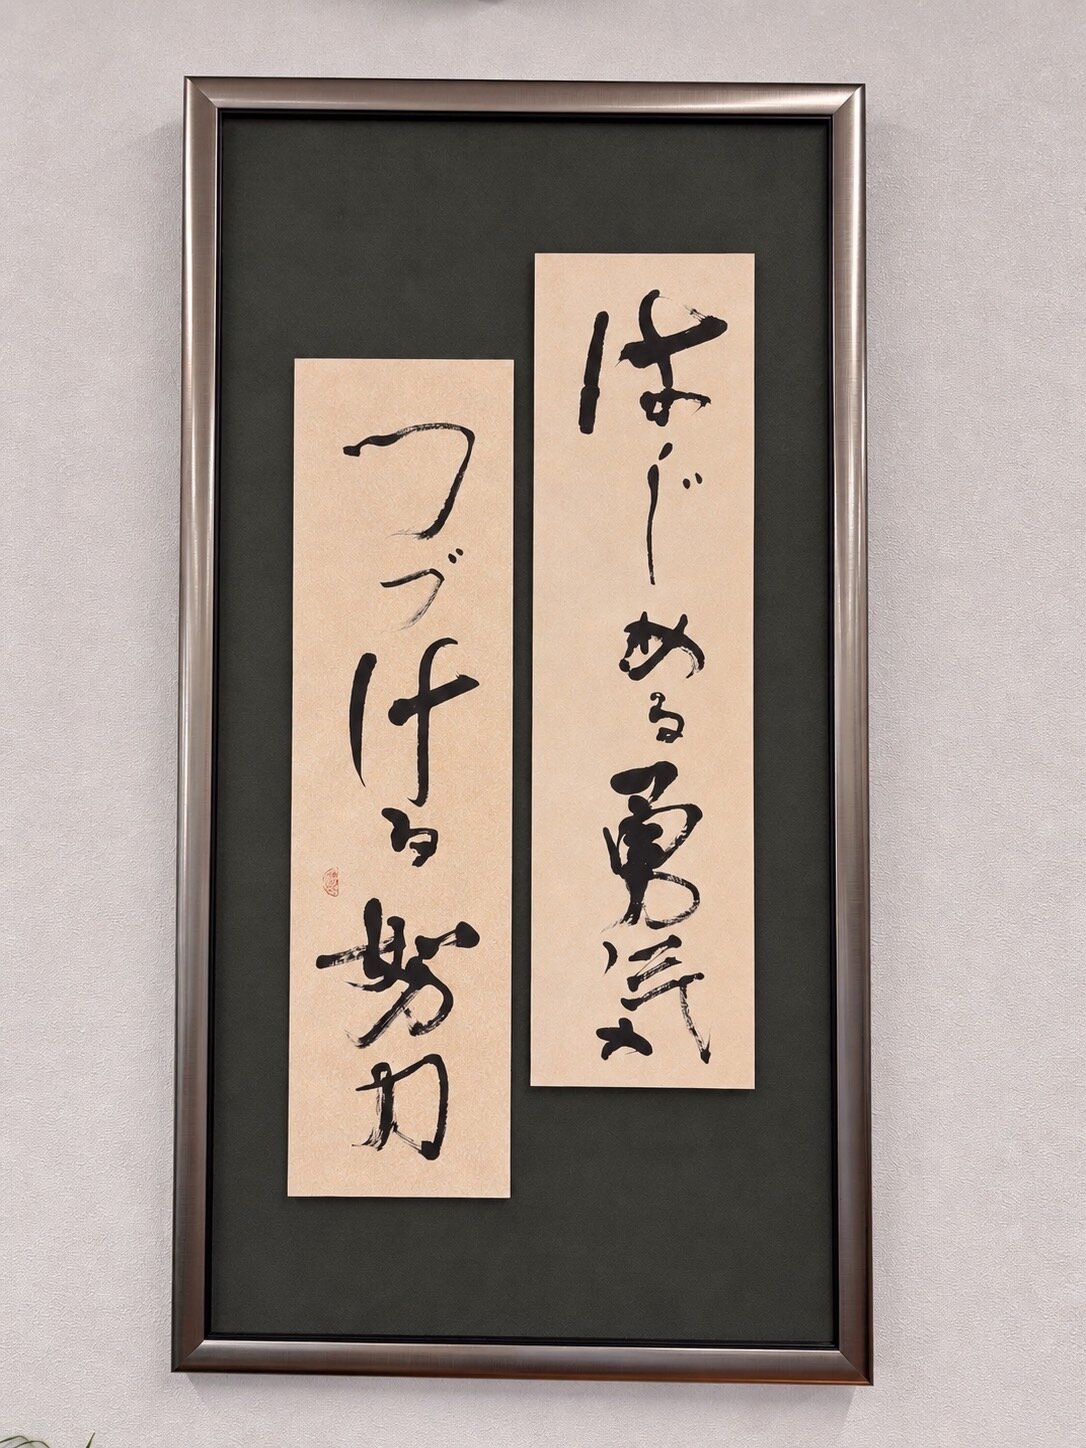 はじめる勇気
つづける努力